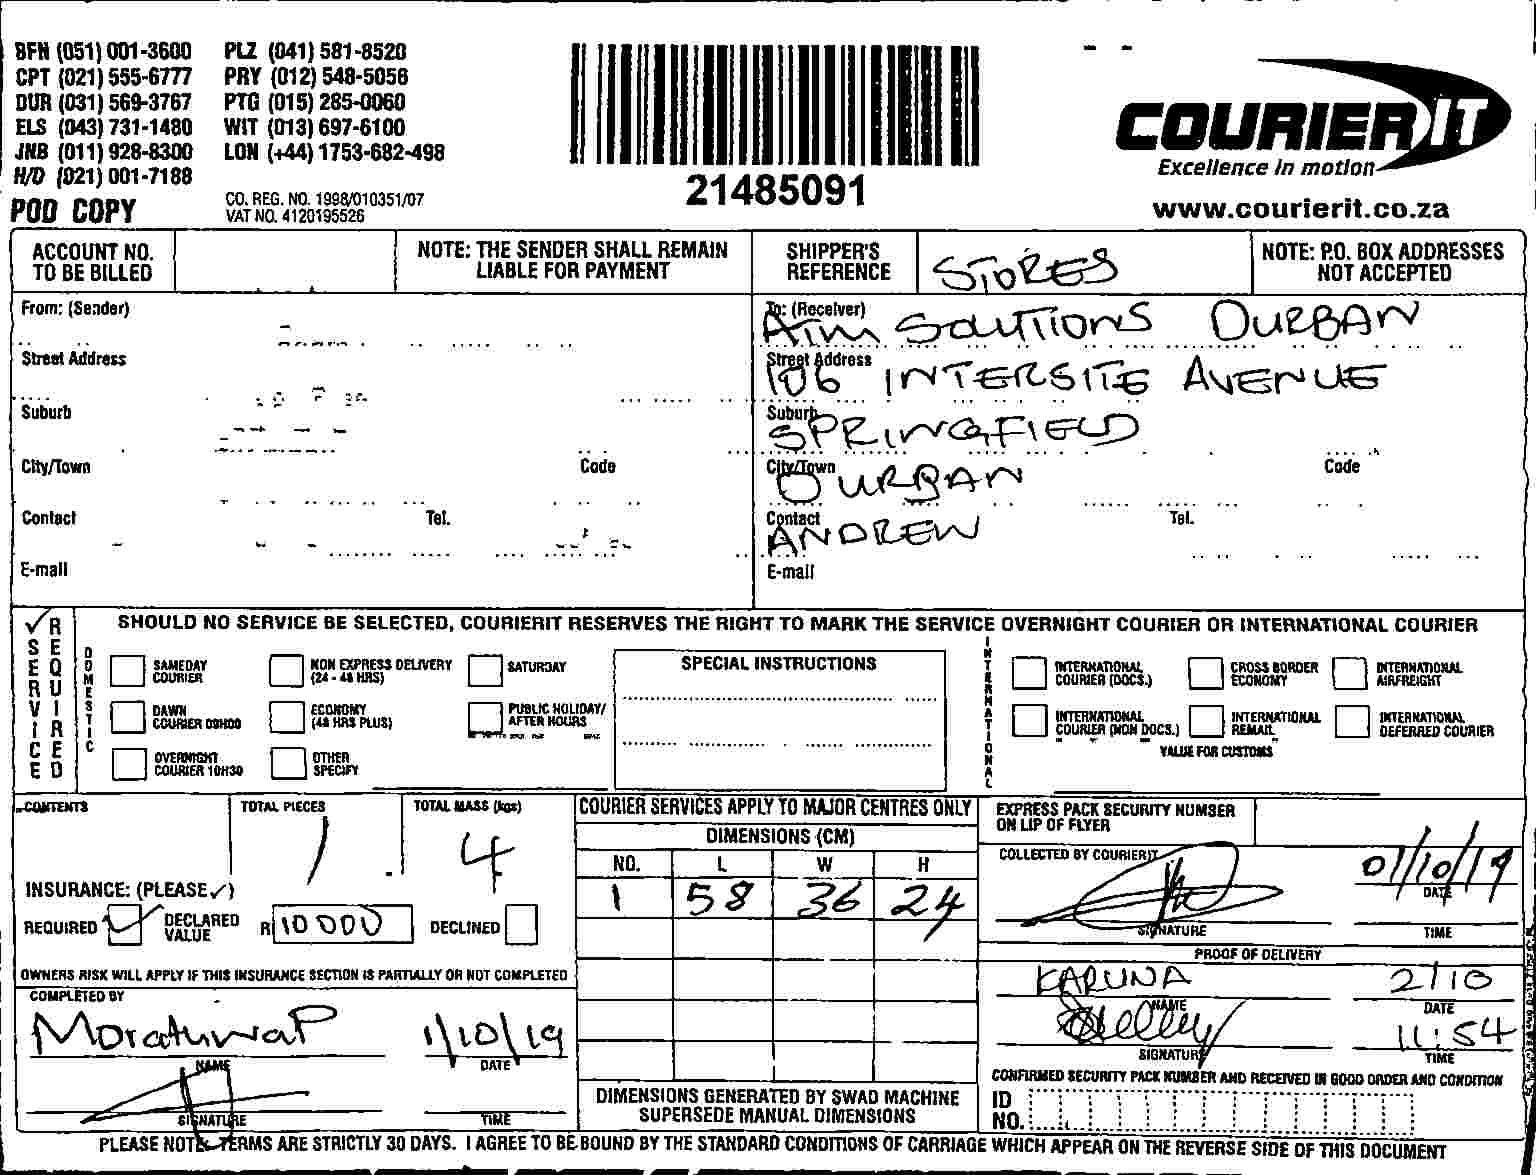 BFN (051) 001-3600 PLZ (041) 581-8520
CPT (021) 555-6777 PRY (012) 548-5056
DUR (031) 569-3767 PTG (015) 285-0060
ELS (043) 731-1480 WIT (013) 697-6100
JNB (011) 928-8300 LON (+44) 1753-682-498
H/D (021) 001-7188
POD COPY
CO. REG. NO. 1998/010351/07
VAT NO. 4120195526
21485091
COURIER IT
Excellence in motion
www.courierit.co.za
ACCOUNT NO. TO BE BILLED
NOTE: THE SENDER SHALL REMAIN LIABLE FOR PAYMENT
SHIPPER'S REFERENCE STORES
NOTE: P.O. BOX ADDRESSES NOT ACCEPTED
From: (Sender)
Street Address
Suburb
City/Town Code
Contact Tel.
E-mail
To: (Receiver) AIM SOLUTIONS DURBAN
Street Address 106 INTERSITE AVENUE
Suburb SPRINGFIELD
City/Town DURBAN Code
Contact ANDREW Tel.
E-mail
✓ SERVICE REQUIRED
SHOULD NO SERVICE BE SELECTED, COURIERIT RESERVES THE RIGHT TO MARK THE SERVICE OVERNIGHT COURIER OR INTERNATIONAL COURIER
DOMESTIC
SAMEDAY COURIER
NON EXPRESS DELIVERY (24 - 48 HRS)
SATURDAY
DAWN COURIER 09H00
ECONOMY (48 HRS PLUS)
PUBLIC HOLIDAY/ AFTER HOURS
OVERNIGHT COURIER 10H30
OTHER SPECIFY
SPECIAL INSTRUCTIONS
INTERNATIONAL
INTERNATIONAL COURIER (DOCS.)
CROSS BORDER ECONOMY
INTERNATIONAL AIRFREIGHT
INTERNATIONAL COURIER (NON DOCS.)
INTERNATIONAL REMAIL
INTERNATIONAL DEFERRED COURIER
VALUE FOR CUSTOMS
CONTENTS
TOTAL PIECES 1
TOTAL MASS (kgs) 4
INSURANCE: (PLEASE ✓)
REQUIRED ✓ DECLARED VALUE R 10 000 DECLINED
OWNERS RISK WILL APPLY IF THIS INSURANCE SECTION IS PARTIALLY OR NOT COMPLETED
COMPLETED BY
Moratuwa P 1/10/19
NAME DATE
SIGNATURE TIME
COURIER SERVICES APPLY TO MAJOR CENTRES ONLY
DIMENSIONS (CM)
NO. L W H
1 58 36 24
DIMENSIONS GENERATED BY SWAD MACHINE
SUPERSEDE MANUAL DIMENSIONS
EXPRESS PACK SECURITY NUMBER ON LIP OF FLYER
COLLECTED BY COURIERIT
01/10/19
DATE
SIGNATURE TIME
PROOF OF DELIVERY
KARUNA 2/10
NAME DATE
11:54
SIGNATURE TIME
CONFIRMED SECURITY PACK NUMBER AND RECEIVED IN GOOD ORDER AND CONDITION
ID NO.
PLEASE NOTE: TERMS ARE STRICTLY 30 DAYS. I AGREE TO BE BOUND BY THE STANDARD CONDITIONS OF CARRIAGE WHICH APPEAR ON THE REVERSE SIDE OF THIS DOCUMENT